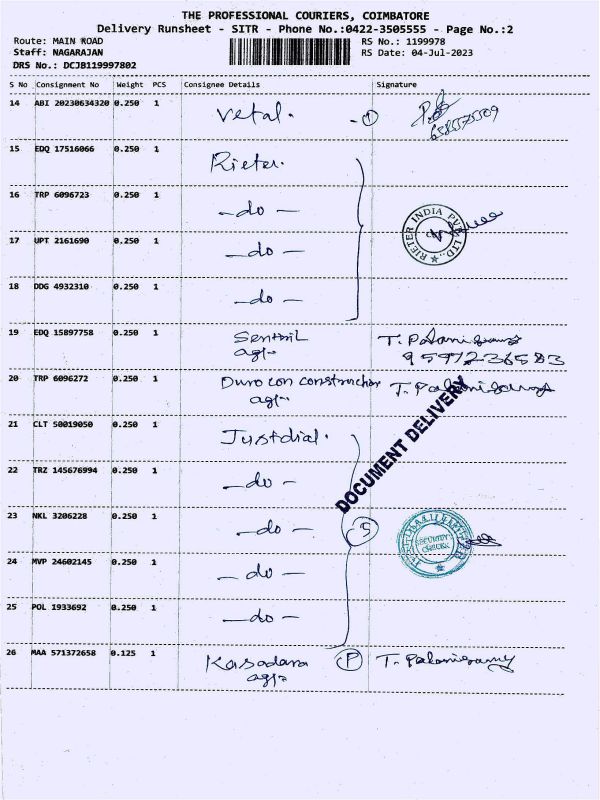 THE PROFESSIONAL COURIERS, COIMBATORE
Delivery Runsheet - SITR - Phone No.:0422-3505555 - Page No.:2
Route: MAIN ROAD
RS No.: 1199978
Staff: NAGARAJAN
RS Date: 04-Jul-2023
DRS No.: DCJB119997802
S No Consignment No Weight PCS Consignee Details Signature
14 ABI 20230634320 0.250 1 Vetal. - 1
15 EDQ 17516066 0.250 1 Rieter.
16 TRP 6096723 0.250 1 - do -
RIETER INDIA PVT. LTD.
17 UPT 2161690 0.250 1 - do -
18 DDG 4932310 0.250 1 - do -
19 EDQ 15897758 0.250 1 T. Palanisamy
9597236583
20 TRP 6096272 0.250 1 Duro con construction T. Palanisamy
DOCUMENT DELIVERY
21 CLT 50019050 0.250 1 Justdial.
22 TRZ 145676994 0.250 1 - do -
23 NKL 3206228 0.250 1 - do - 5
SECURITY
24 MVP 24602145 0.250 1 - do -
25 POL 1933692 0.250 1 - do -
26 MAA 571372658 0.125 1 Kasadara P T. Palanisamy